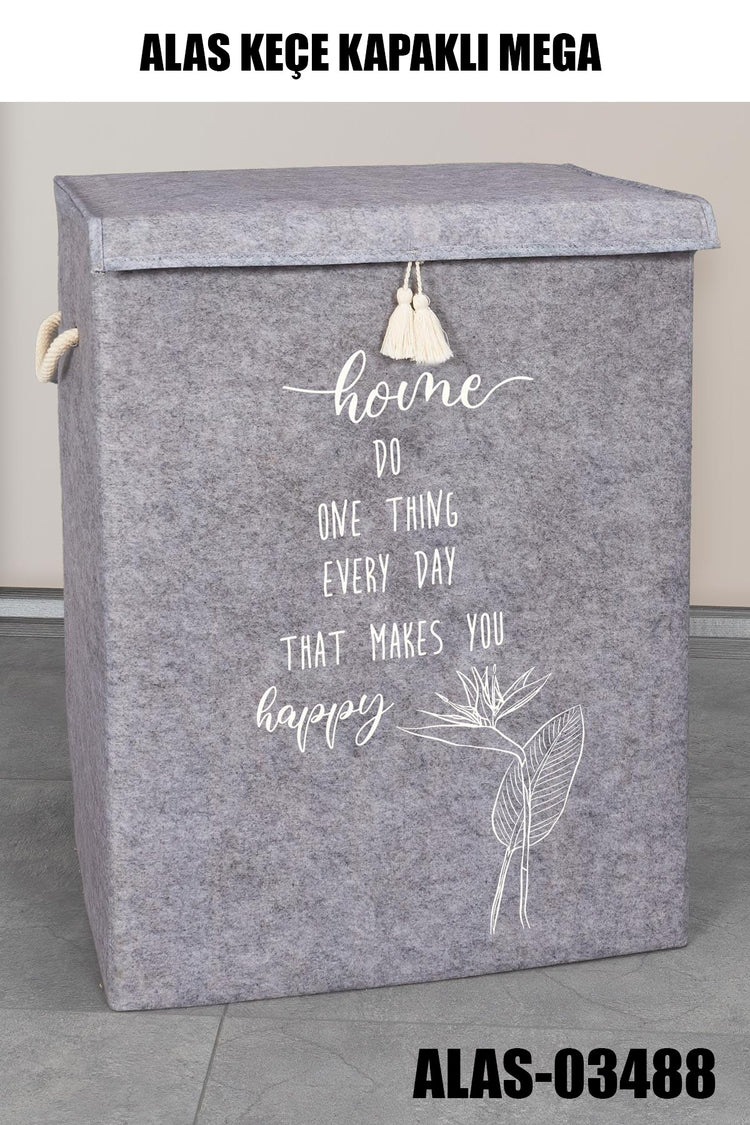 ALAS KEÇE KAPAKLI MEGA
home
DO
ONE THING
EVERY DAY
THAT MAKES YOU
happy
ALAS-03488